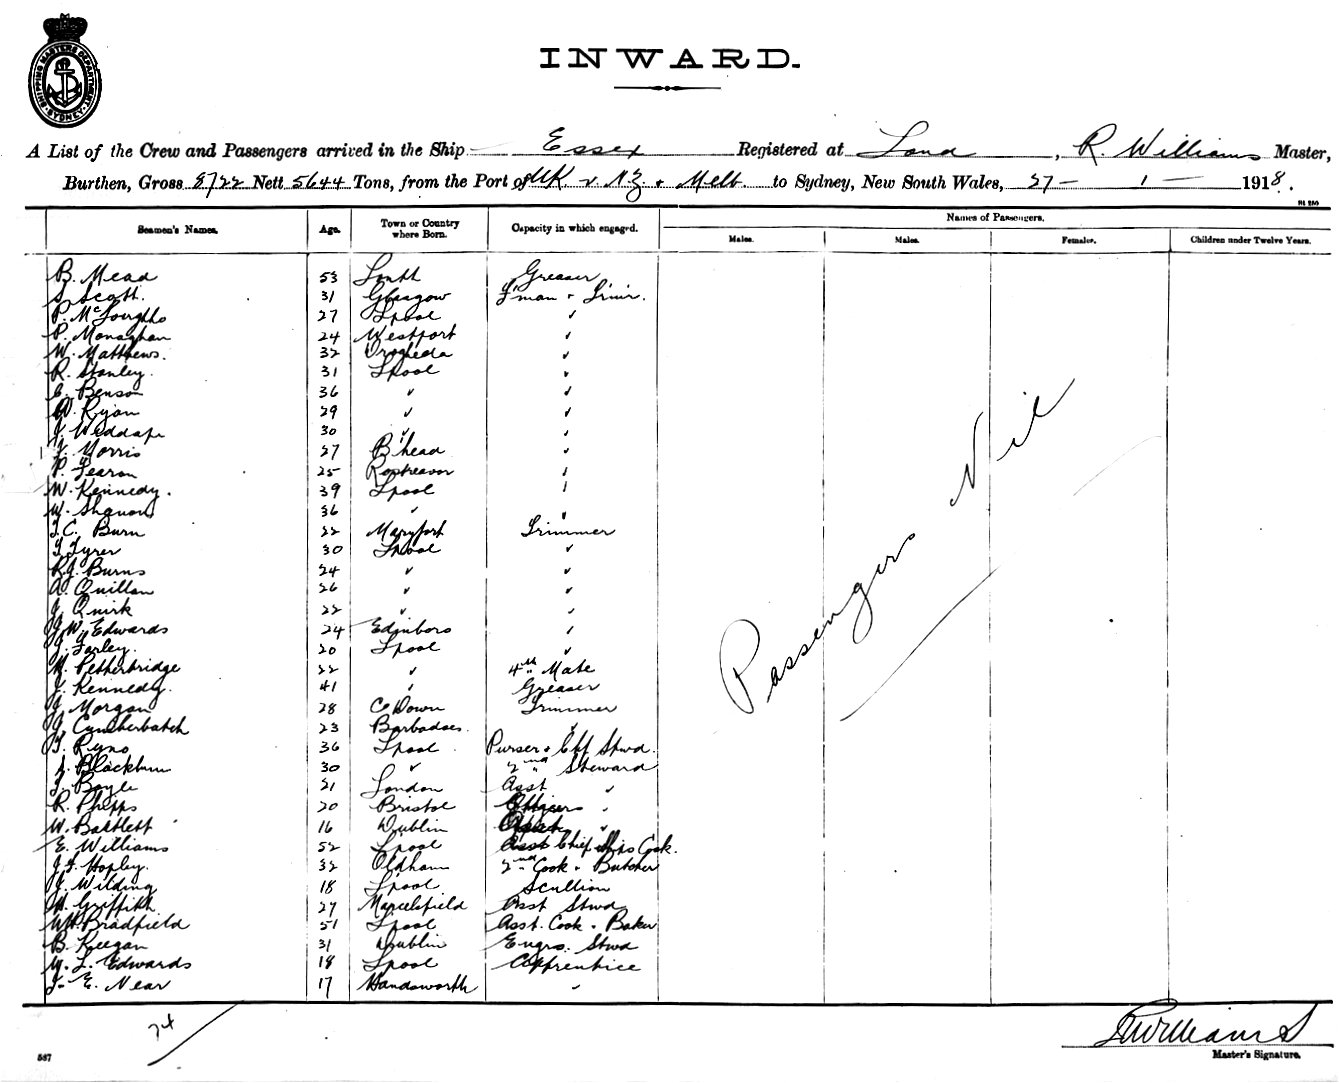 SHIPPING MASTERS DEPARTMENT · SYDNEY ·
INWARD.
A List of the Crew and Passengers arrived in the Ship Essex Registered at Lond, R. Williams Master,
Burthen, Gross 8722 Nett 5644 Tons, from the Port of UK v. N.Z. + Melb. to Sydney, New South Wales, 27 - 1 - 1918.
Seamen's Names. Age. Town or Country where Born. Capacity in which engaged. Names of Passengers.
Males. Males. Females. Children under Twelve Years.
B. Mead 53 Louth Greaser
S. Scott. 31 Glasgow F'man + Trimr.
P. McLoughlo 27 Lpool "
P. Monaghan 24 Westport "
W. Matthews. 32 Drogheda "
R. Stanley. 31 Lpool "
C. Benson 36 " "
W. Ryan 29 " "
J. Weddape 30 " "
J. Morris 27 B'head "
P. Fearon 25 Rostrevor "
W. Kennedy. 39 Lpool "
W. Shanon 36 " "
T.C. Burn 22 Maryport Trimmer
T. Tyrer 30 Lpool "
R.J. Burns 24 " "
A. Quillan 26 " "
J. Quirk 22 " "
J.W. Edwards 24 Edinboro "
J. Farley. 20 Lpool "
H. Petherbridge 22 " 4th Mate
J. Kennedy. 41 " Greaser
J. Morgan 28 Co Down Trimmer
J. Cumberbatch 23 Barbadoes "
T. Ryno 36 Lpool Purser + Chf Stwd.
J. Blackburn 30 " 2nd Steward
T. Boyle 21 London Asst "
R. Phipps 20 Bristol Officers "
W. Bartlett 16 Dublin Asst "
E. Williams 52 Lpool Asst Chief Ships Cook.
J.F. Hopley. 32 Oldham 2nd Cook + Butcher
J. Wilding 18 Lpool Scullion
H. Griffith 27 Macclesfield Asst Stwd
W.H. Bradfield 51 Lpool Asst. Cook + Baker
B. Keegan 31 Dublin Engrs. Stwd
M. L. Edwards 18 Lpool Apprentice
F. E. Near 17 Handsworth "
Passengers Nil
74
R Williams
587 Master's Signature.